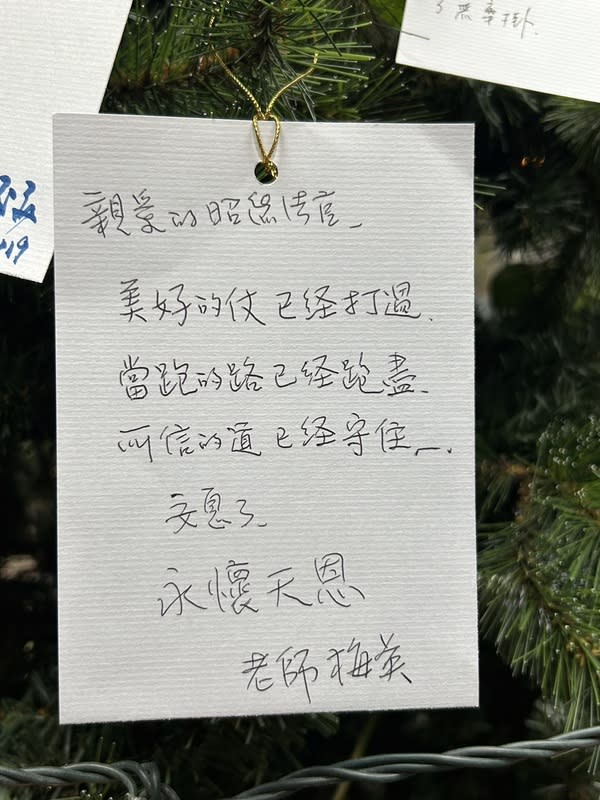 了無牽掛.
19
親愛的昭
美好的仗已经打過、
當跑的路已经跑盡、
所信的道已经守住、
安息了、
永懷天恩
老師梅英